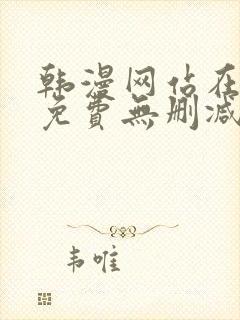 韩漫网站在
免費無删减
韦唯